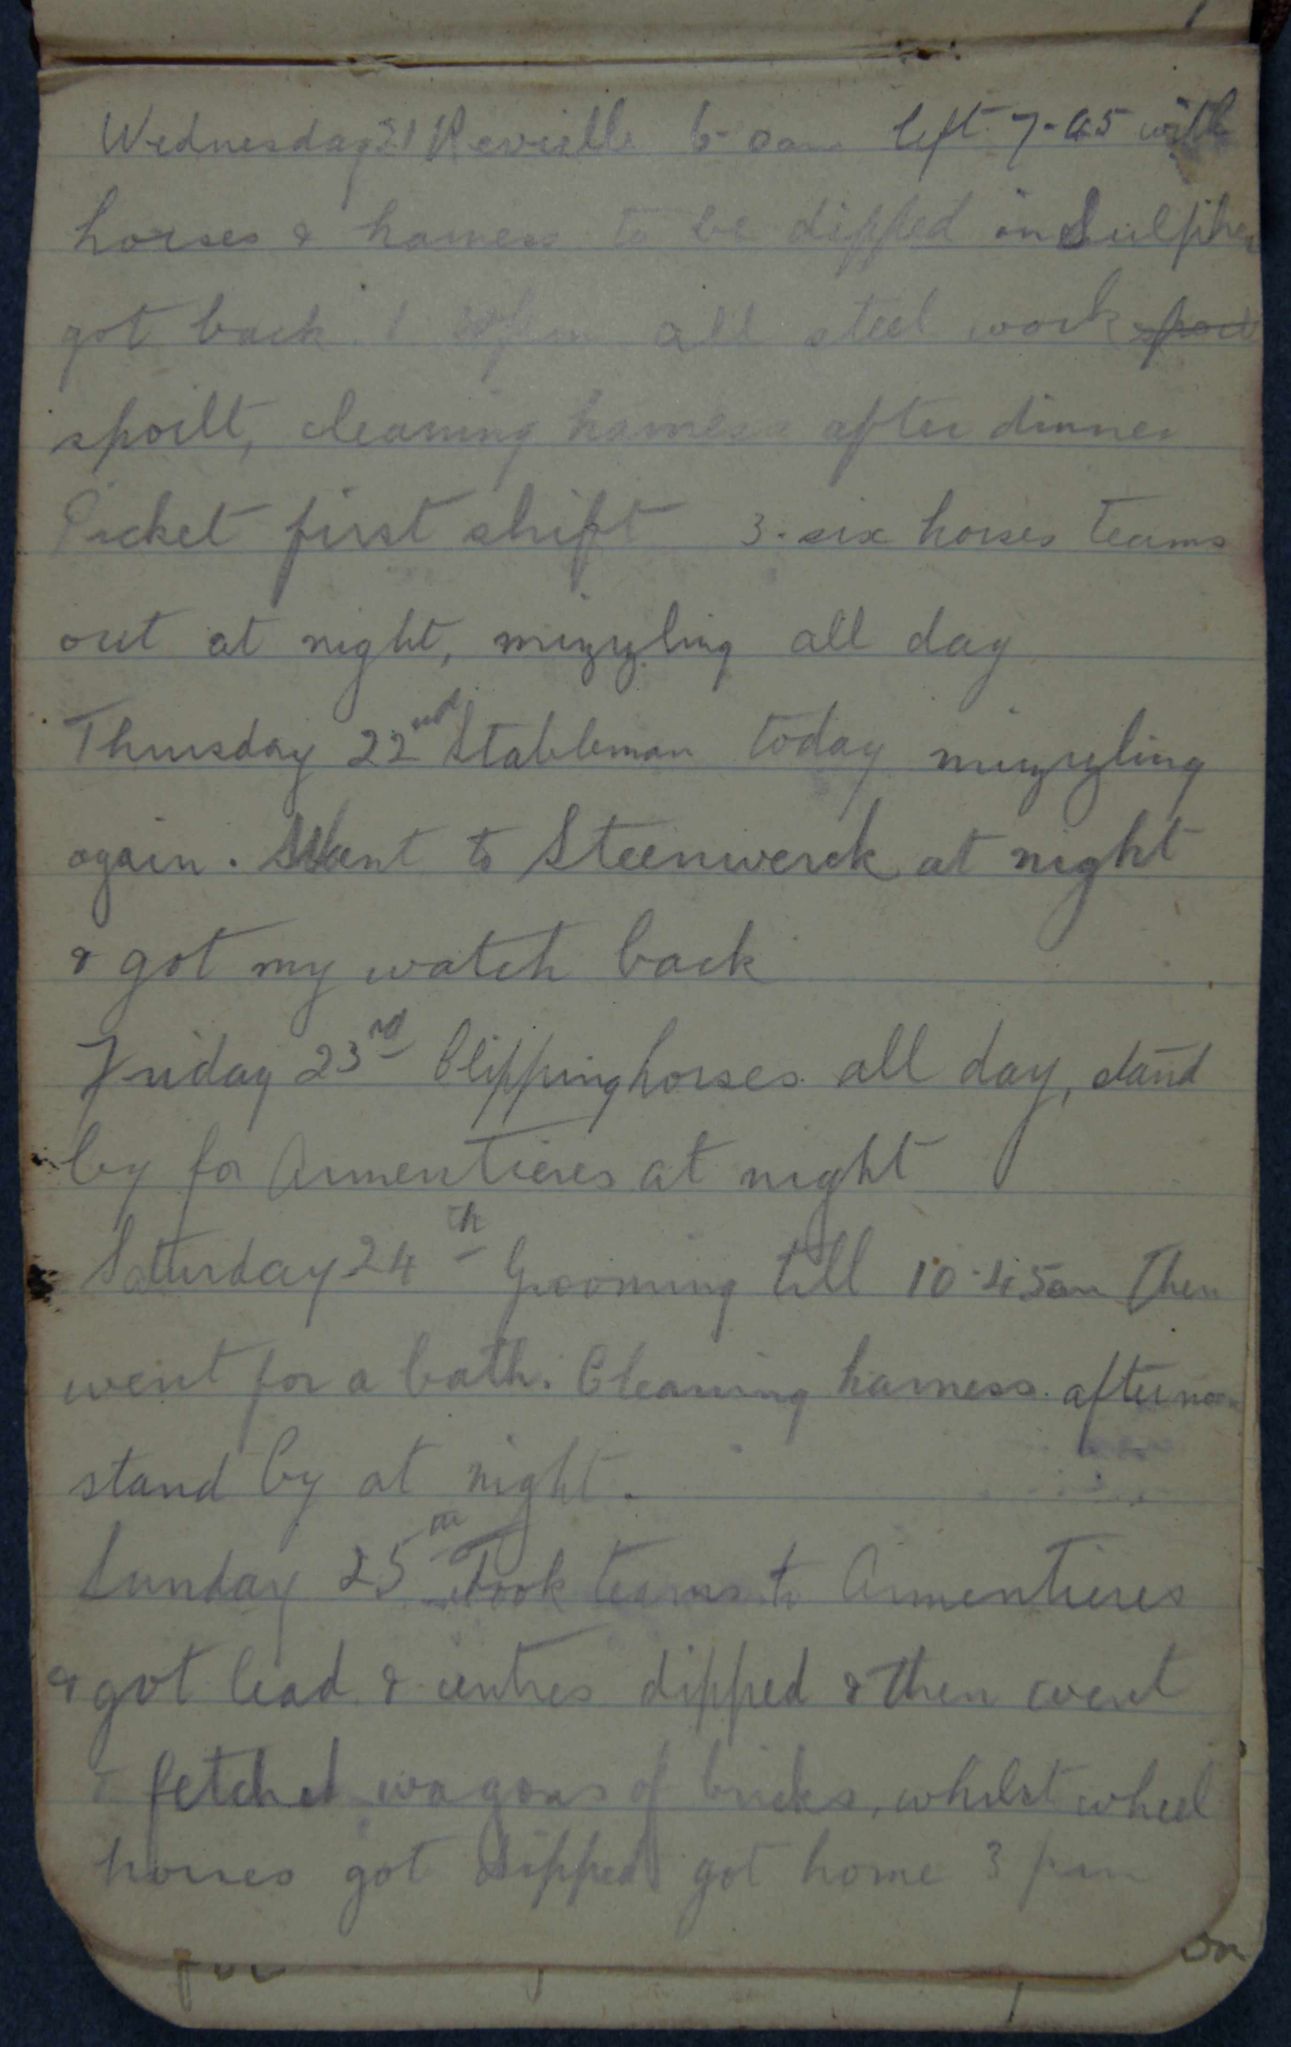 Wednesday 21 Reveille 6-0am left 7-45 with
horses & harness to be dipped in Sulpher
got back 1 30pm all steel work
spoilt, cleaning harness after dinner
Picket first shift 3-six horses teams
out at night, mizzling all day
Thursday 22nd Stableman today mizzling
again. Went to Steenwerck at night
& got my watch back
Friday 23rd Clipping horses all day, stand
by for Armentieres at night
Saturday 24th Grooming till 10-45am then
went for a bath. Cleaning harness afternoon
stand by at night.
Sunday 25th Took teams to Armentieres
& got lead & centres dipped & then went
& fetched wagons of bricks, whilst wheel
horses got dipped got home 3 pm
on